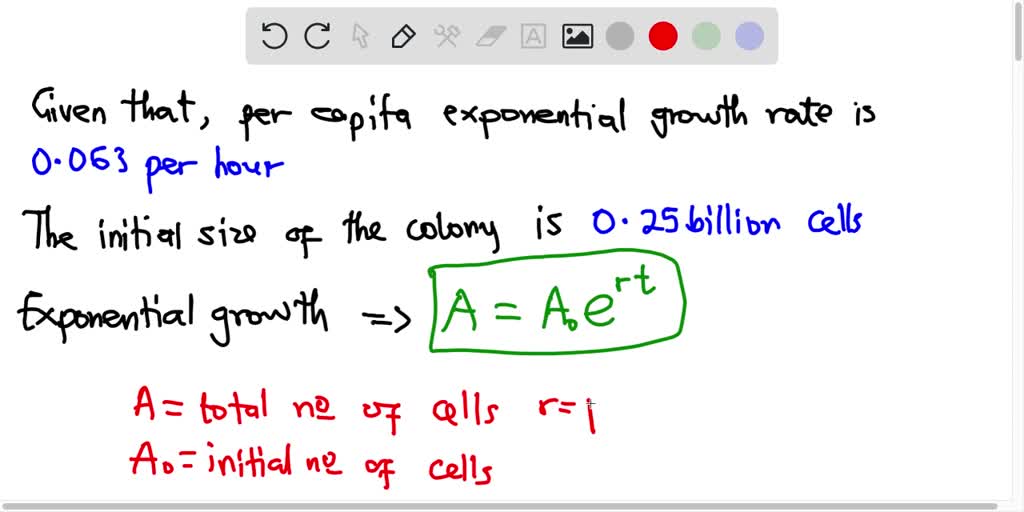 Given that, per capita exponential growth rate is
0.063 per hour
The initial size of the colony is 0.25 billion cells
Exponential growth => A = A₀e^{rt}
A = total no of cells r=
A₀ = initial no of cells